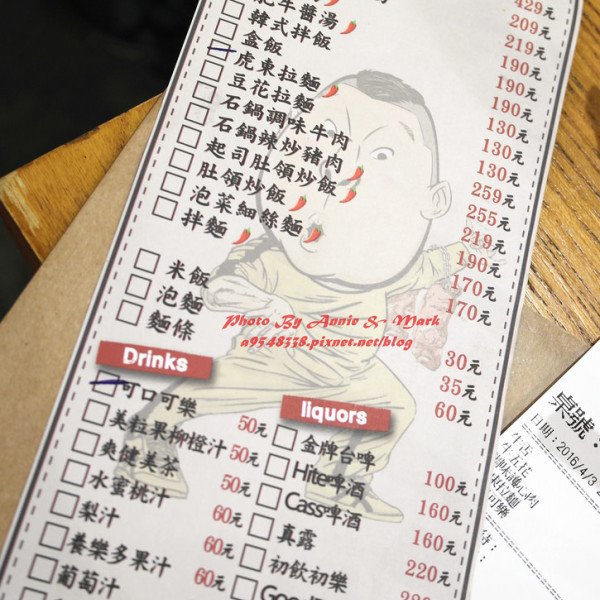 牛醬湯 429元
韓式拌飯 209元
盒飯 219元
虎東拉麵 190元
豆花拉麵 190元
石鍋調味牛肉 190元
石鍋辣炒豬肉 130元
起司肚領炒飯 130元
肚領炒飯 130元
泡菜細絲麵 259元
拌麵 255元
219元
190元
170元
170元
米飯 30元
泡麵 35元
麵條 60元
Photo By Annie & Mark
a9548338.pixnet.net/blog
Drinks
可口可樂 50元
美粒果柳橙汁 50元
爽健美茶 50元
水蜜桃汁 60元
梨汁 60元
養樂多果汁 60元
葡萄汁
liquors
金牌台啤 100元
Hite啤酒 160元
Cass啤酒 160元
真露 220元
初飲初樂
桌號:
日期:2016/4/3